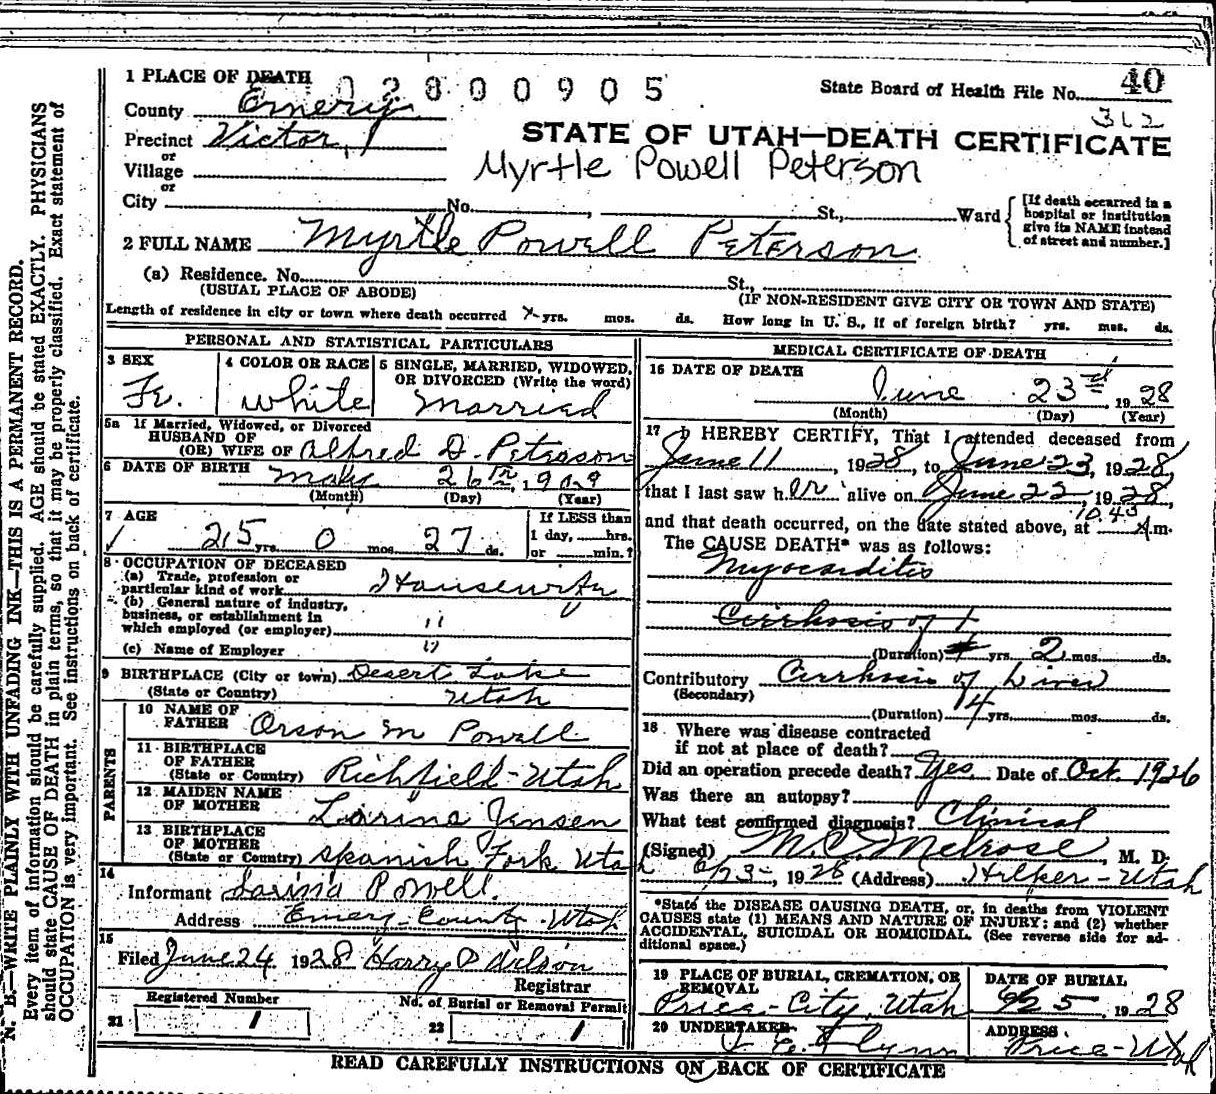 1 PLACE OF DEATH
02800905
State Board of Health File No. 40
County Emery
312
Precinct Victor
STATE OF UTAH—DEATH CERTIFICATE
or
Village
Myrtle Powell Peterson
or
City No. , St., Ward
[If death occurred in a hospital or institution give its NAME instead of street and number.]
2 FULL NAME Myrtle Powell Peterson
(a) Residence. No. St.,
(USUAL PLACE OF ABODE) (IF NON-RESIDENT GIVE CITY OR TOWN AND STATE)
Length of residence in city or town where death occurred yrs. mos. ds. How long in U. S., if of foreign birth? yrs. mos. ds.
PERSONAL AND STATISTICAL PARTICULARS
3 SEX
4 COLOR OR RACE
5 SINGLE, MARRIED, WIDOWED,
OR DIVORCED (Write the word)
white
Married
5a If Married, Widowed, or Divorced
HUSBAND OF
(OR) WIFE OF Alfred D. Peterson
6 DATE OF BIRTH May 26 19
(Month) (Day) (Year)
7 AGE
If LESS than
1 day, hrs.
or min.?
25 yrs. 0 mos. 27 ds.
8 OCCUPATION OF DECEASED
(a) Trade, profession or
particular kind of work Housewife
(b) General nature of industry,
business, or establishment in
which employed (or employer) "
(c) Name of Employer "
9 BIRTHPLACE (City or town) Desert Lake
(State or Country) Utah
PARENTS
10 NAME OF
FATHER Orson M Powell
11 BIRTHPLACE
OF FATHER
(State or Country) Richfield-Utah
12 MAIDEN NAME
OF MOTHER Larina Jensen
13 BIRTHPLACE
OF MOTHER
(State or Country) Spanish Fork Utah
14
Informant Larina Powell.
Address Emery County Utah
15
Filed June 24 1928 Harry P
Registrar
Registered Number
21 1
No. of Burial or Removal Permit
22 1
MEDICAL CERTIFICATE OF DEATH
16 DATE OF DEATH
June 23rd, 1928
(Month) (Day) (Year)
17 I HEREBY CERTIFY, That I attended deceased from
June 11, 1928, to June 23, 1928,
that I last saw her alive on June 22, 1928,
10.45
and that death occurred, on the date stated above, at A.m.
The CAUSE DEATH* was as follows:
Myocarditis
Cirrhosis of
(Duration) yrs. 2 mos. ds.
Contributory Cirrhosis of Liver
(Secondary)
(Duration) 14 yrs. mos. ds.
18 Where was disease contracted
if not at place of death?
Did an operation precede death? Yes Date of Oct. 1926
Was there an autopsy?
What test confirmed diagnosis? Clinical
(Signed) M.C. Melrose, M. D.
6/23, 1928 (Address) Utah
*State the DISEASE CAUSING DEATH, or, in deaths from VIOLENT
CAUSES state (1) MEANS AND NATURE OF INJURY; and (2) whether
ACCIDENTAL, SUICIDAL OR HOMICIDAL. (See reverse side for ad-
ditional space.)
19 PLACE OF BURIAL, CREMATION, OR
REMOVAL
Price-City, Utah
DATE OF BURIAL
6/25, 1928
20 UNDERTAKER
Flynn
ADDRESS
Price-Utah
READ CAREFULLY INSTRUCTIONS ON BACK OF CERTIFICATE
N. B.—WRITE PLAINLY WITH UNFADING INK—THIS IS A PERMANENT RECORD.
Every item of information should be carefully supplied. AGE should be stated EXACTLY. PHYSICIANS
should state CAUSE OF DEATH in plain terms, so that it may be properly classified. Exact statement of
OCCUPATION is very important. See instructions on back of certificate.